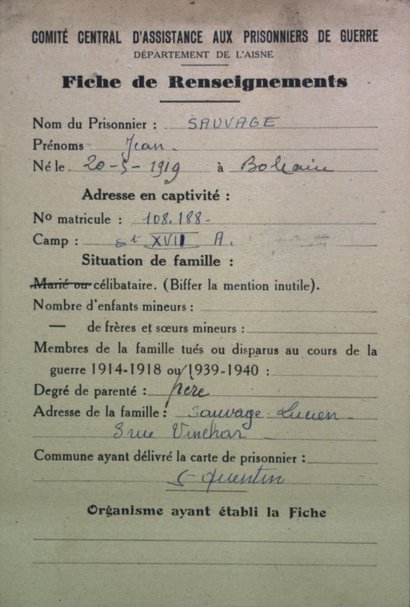 COMITÉ CENTRAL D'ASSISTANCE AUX PRISONNIERS DE GUERRE
DÉPARTEMENT DE L'AISNE
Fiche de Renseignements
Nom du Prisonnier : SAUVAGE
Prénoms Jean
Né le 20-5-1919 à Bohain
Adresse en captivité :
No matricule : 108.188
Camp : St XVII A.
Situation de famille :
Marié ou célibataire. (Biffer la mention inutile).
Nombre d'enfants mineurs :
— de frères et sœurs mineurs :
Membres de la famille tués ou disparus au cours de la
guerre 1914-1918 ou 1939-1940 :
Degré de parenté : père
Adresse de la famille : Sauvage Lucien
3 rue
Commune ayant délivré la carte de prisonnier :
St Quentin
Organisme ayant établi la Fiche